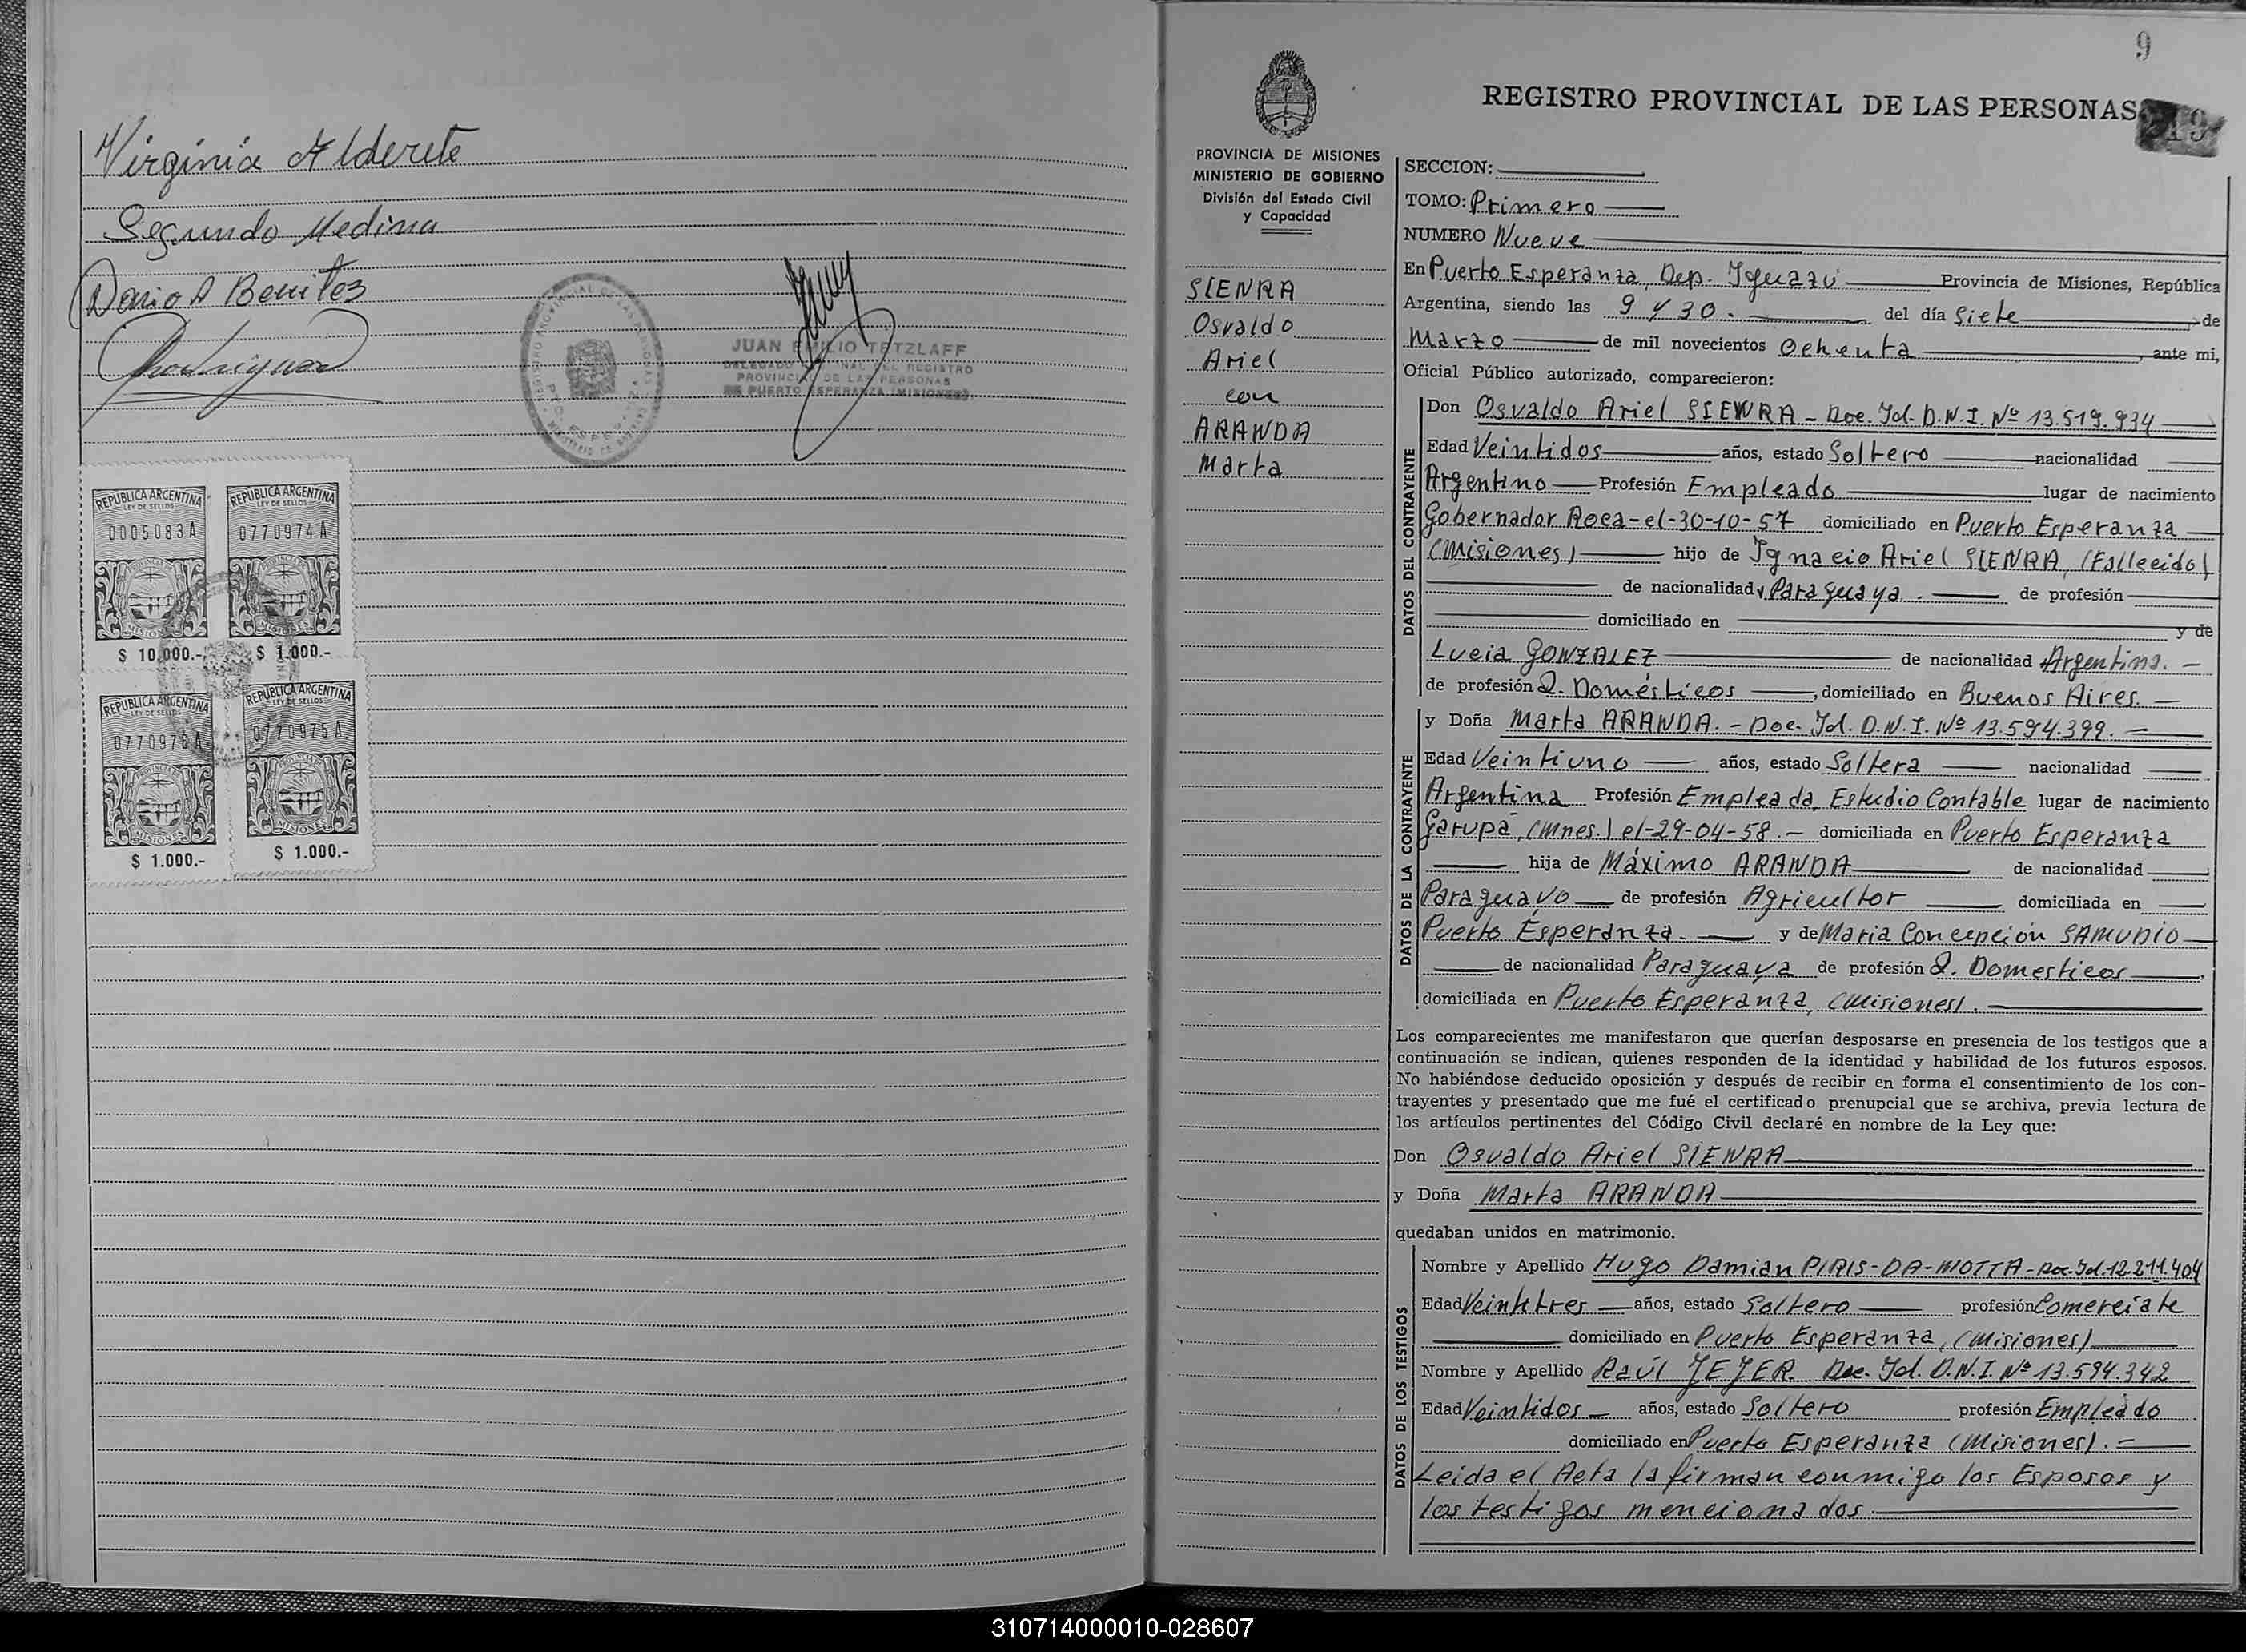 Virginia Alderete
Segundo Medina
Dario A Benitez
JUAN EMILIO TETZLAFF
DELEGADO DEL REGISTRO
PROVINCIAL DE LAS PERSONAS
DE PUERTO ESPERANZA (MISIONES)
REPUBLICA ARGENTINA
LEY DE SELLOS
0005083A
MISIONES
$ 10.000.-
REPUBLICA ARGENTINA
LEY DE SELLOS
0770974A
MISIONES
$ 1.000.-
REPUBLICA ARGENTINA
LEY DE SELLOS
MISIONES
$ 1.000.-
REPUBLICA ARGENTINA
LEY DE SELLOS
0770975A
MISIONES
$ 1.000.-
9
REGISTRO PROVINCIAL DE LAS PERSONAS
PROVINCIA DE MISIONES
MINISTERIO DE GOBIERNO
División del Estado Civil
y Capacidad
SIENRA
Osvaldo
Ariel
con
ARANDA
Marta
SECCION:
TOMO: Primero
NUMERO Nueve
En Puerto Esperanza, Dep. Iguazú Provincia de Misiones, República
Argentina, siendo las 9 y 30. del día Siete de
Marzo de mil novecientos Ochenta, ante mi,
Oficial Público autorizado, comparecieron:
DATOS DEL CONTRAYENTE
Don Osvaldo Ariel SIENRA - Doc. Id. D.N.I. Nº 13.519.934
Edad Veintidos años, estado Soltero nacionalidad
Argentino Profesión Empleado lugar de nacimiento
Gobernador Roca - el - 30-10-57 domiciliado en Puerto Esperanza
(Misiones) hijo de Ignacio Ariel SIENRA, (Fallecido)
de nacionalidad Paraguaya. de profesión
domiciliado en y de
Lucia GONZALEZ de nacionalidad Argentina. -
de profesión Q. Domésticos, domiciliado en Buenos Aires. -
DATOS DE LA CONTRAYENTE
y Doña Marta ARANDA. - Doc. Id. D.N.I. Nº 13.594.399. -
Edad Veintiuno años, estado Soltera nacionalidad
Argentina Profesión Empleada, Estudio Contable lugar de nacimiento
Garupá, (Mnes.) el - 29-04-58. - domiciliada en Puerto Esperanza
hija de Máximo ARANDA de nacionalidad
Paraguayo de profesión Agricultor domiciliada en
Puerto Esperanza. y de Maria Concepción SAMUDIO
de nacionalidad Paraguaya de profesión Q. Domesticos,
domiciliada en Puerto Esperanza, (Misiones).
Los comparecientes me manifestaron que querían desposarse en presencia de los testigos que a
continuación se indican, quienes responden de la identidad y habilidad de los futuros esposos.
No habiéndose deducido oposición y después de recibir en forma el consentimiento de los con-
trayentes y presentado que me fué el certificado prenupcial que se archiva, previa lectura de
los artículos pertinentes del Código Civil declaré en nombre de la Ley que:
Don Osvaldo Ariel SIENRA
y Doña Marta ARANDA
quedaban unidos en matrimonio.
DATOS DE LOS TESTIGOS
Nombre y Apellido Hugo Damian PIRIS-DA-MOTTA - Doc. Id. 12.211.404
Edad Veintitres años, estado Soltero profesión Comerciate
domiciliado en Puerto Esperanza, (Misiones)
Nombre y Apellido Raúl YEYER Doc. Id. D.N.I. Nº 13.594.342
Edad Veintidos años, estado Soltero profesión Empleado
domiciliado en Puerto Esperanza (Misiones). =
Leida el Acta la firman conmigo los Esposos y
los testigos mencionados.
310714000010-028607